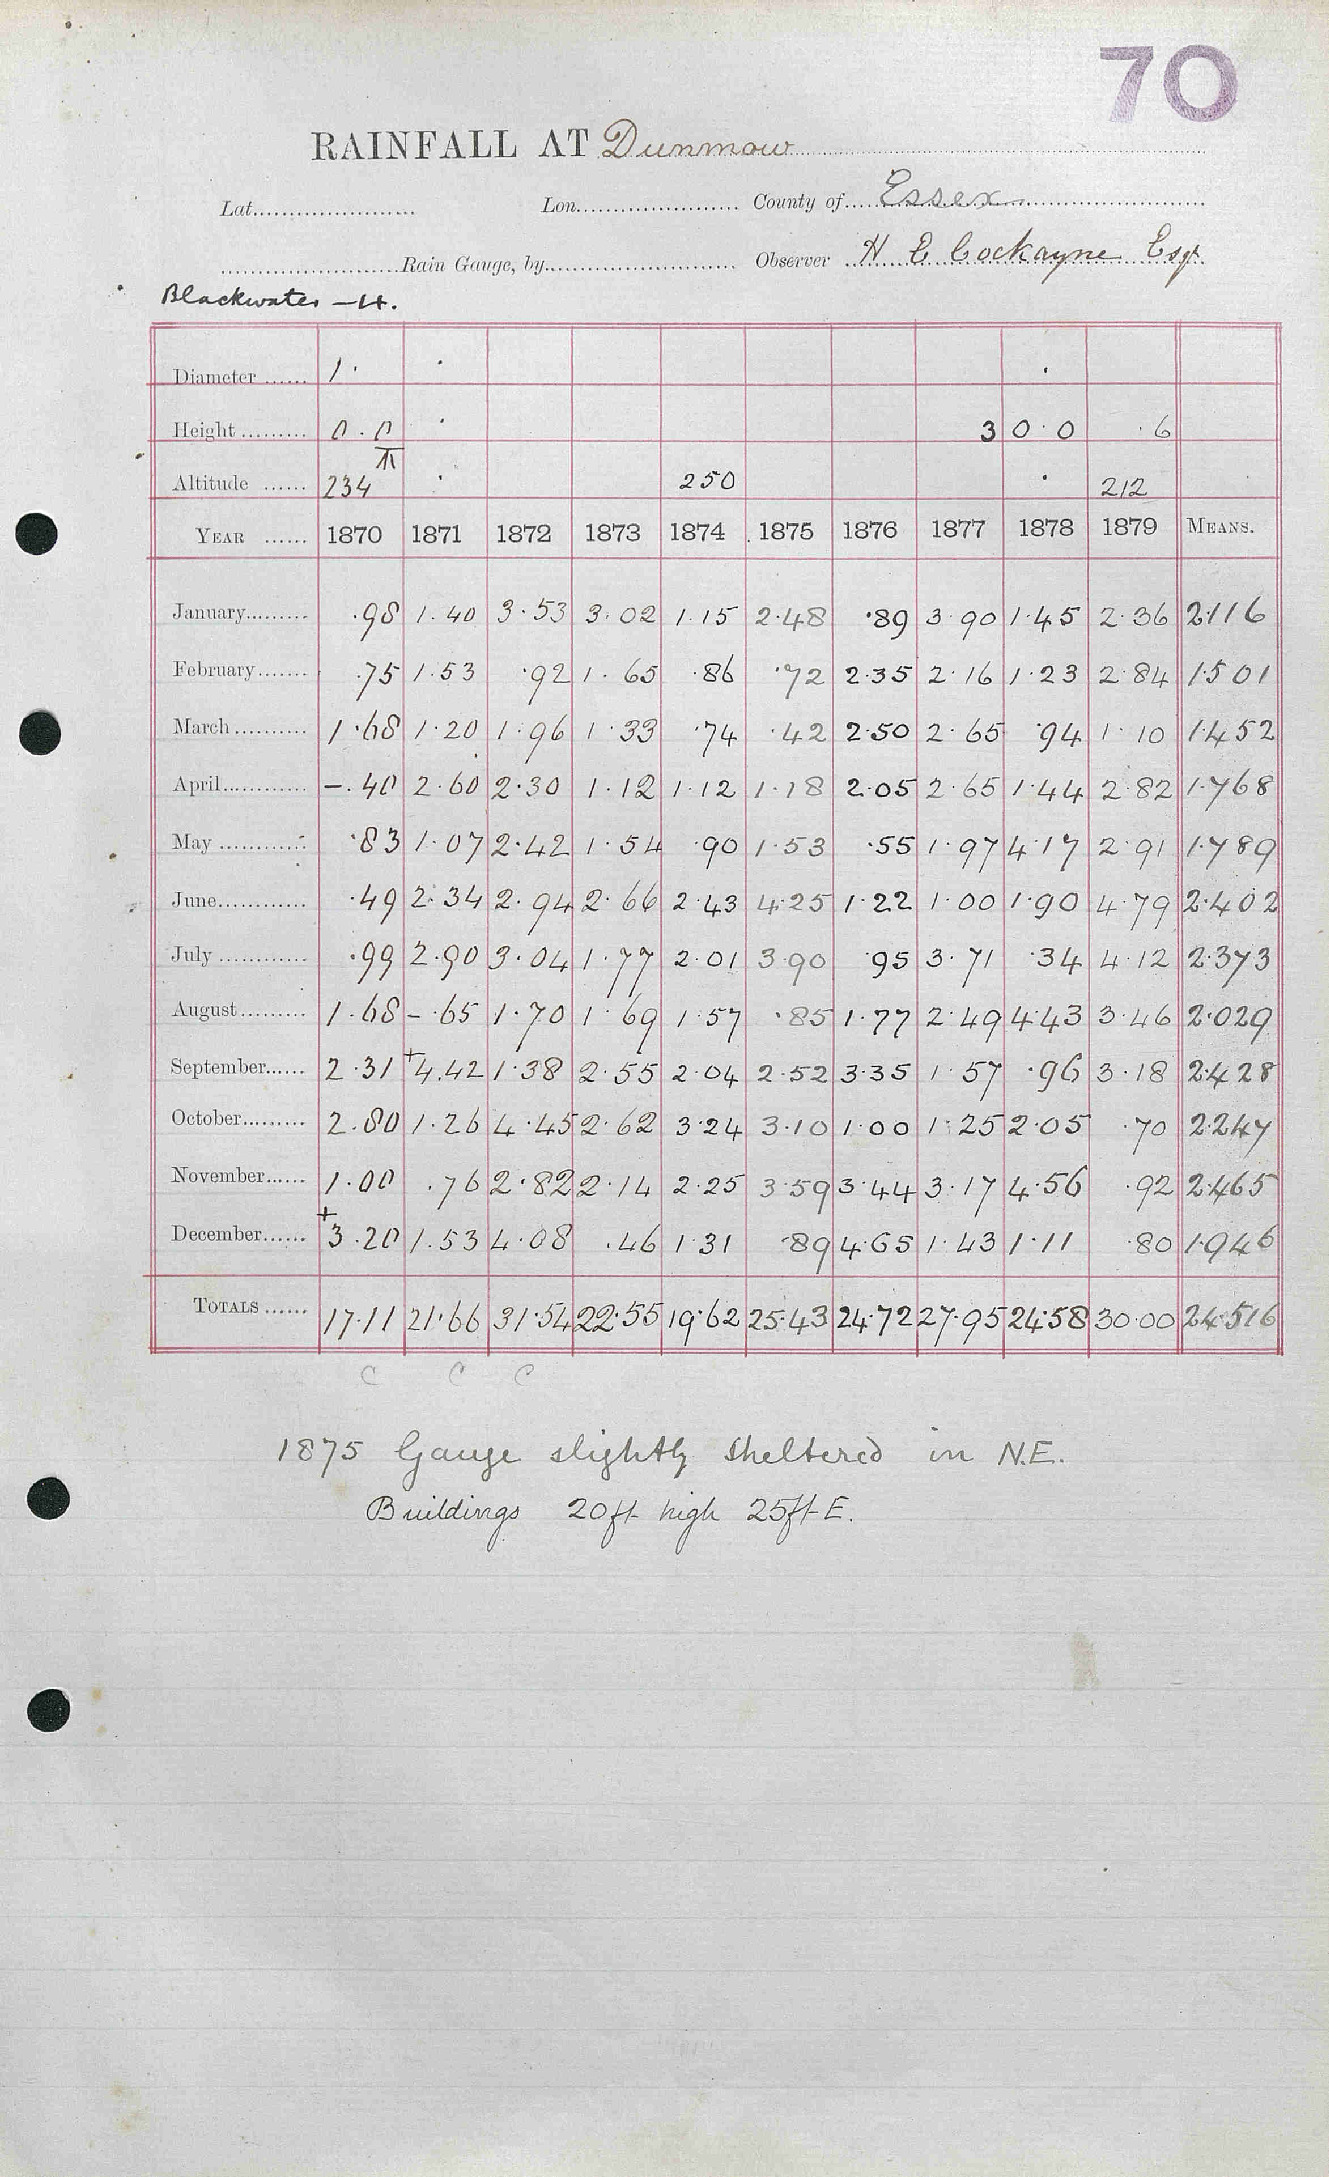 70
RAINFALL AT Dunmow
Lat. Lon. County of Essex
Rain Gauge, by Observer H E Cockayne Esq
Blackwater - 14.
Diameter 1 ·
Height 0 . 0 3 0 · 0 · 6
Altitude 234 250 212
YEAR 1870 1871 1872 1873 1874 1875 1876 1877 1878 1879 MEANS.
January .98 1.40 3.53 3.02 1.15 2.48 .89 3.90 1.45 2.36 2.116
February .75 1.53 .92 1.65 .86 .72 2.35 2.16 1.23 2.84 1.501
March 1.68 1.20 1.96 1.33 .74 .42 2.50 2.65 .94 1.10 1.452
April -.40 2.60 2.30 1.12 1.12 1.18 2.05 2.65 1.44 2.82 1.768
May .83 1.07 2.42 1.54 .90 1.53 .55 1.97 4.17 2.91 1.789
June .49 2.34 2.94 2.66 2.43 4.25 1.22 1.00 1.90 4.79 2.402
July .99 2.90 3.04 1.77 2.01 3.90 .95 3.71 .34 4.12 2.373
August 1.68 -.65 1.70 1.69 1.57 .85 1.77 2.49 4.43 3.46 2.029
September 2.31 +4.42 1.38 2.55 2.04 2.52 3.35 1.57 .96 3.18 2.428
October 2.80 1.26 4.45 2.62 3.24 3.10 1.00 1.25 2.05 .70 2.247
November 1.00 .76 2.82 2.14 2.25 3.59 3.44 3.17 4.56 .92 2.465
December +3.20 1.53 4.08 .46 1.31 .89 4.65 1.43 1.11 .80 1.946
TOTALS 17.11 21.66 31.54 22.55 19.62 25.43 24.72 27.95 24.58 30.00 24.516
C C C
1875 Gauge slightly sheltered in N.E.
Buildings 20ft high 25ft E.